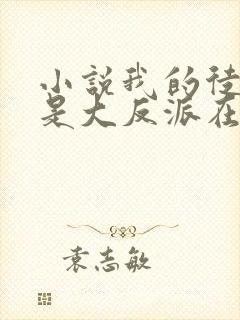 小説我的徒
是大反派在
袁志敏